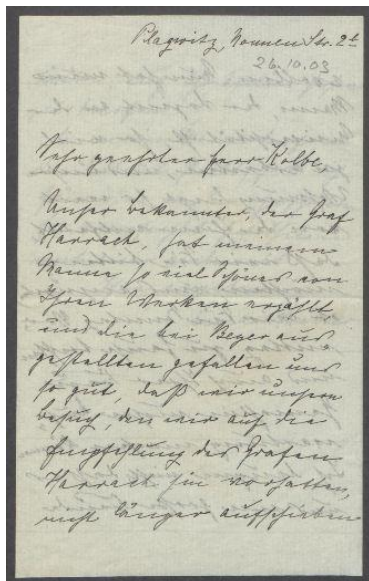 Plagwitz, Nonnen Str. 2b
26.10.03
Sehr geehrter Herr Kolbe,
Unser Bekannter, der Graf
Harrach, hat meinem
Manne so viel Schönes von
Ihren Werken erzählt,
und die bei Beyer aus
gestellten gefallen uns
so gut, daß wir unsern
Besuch, den wir auf die
Empfehlung des Grafen
Harrach hin vorhatten,
nicht länger aufschieben